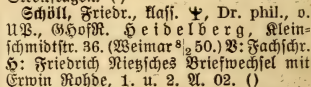 Schöll, Friedr., klass. Ψ, Dr. phil., o.
UP., GHofR. Heidelberg, Klein-
schmidtstr. 36. (Weimar 8/2 50.) V: Fachschr.
H: Friedrich Nietzsches Briefwechsel mit
Erwin Rohde, 1. u. 2. A. 02. ()